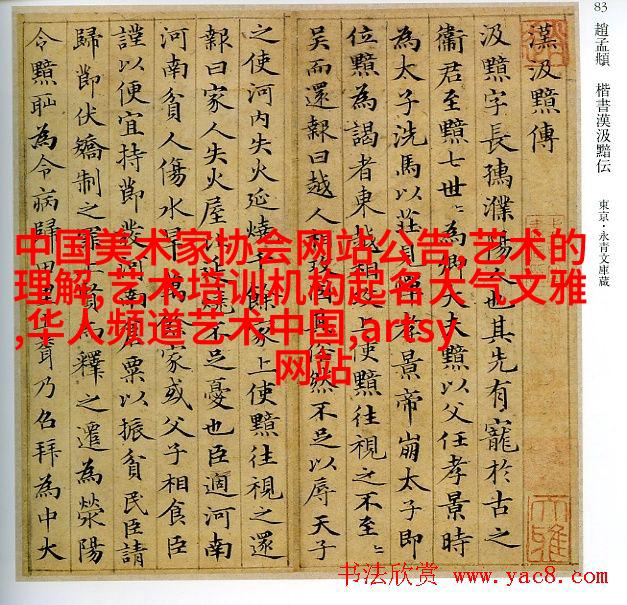 83 趙孟頫 楷書漢汲黯伝 東京・永青文庫蔵
漢汲黯傳
汲黯字長孺濮陽人也其先有寵於古之
衛君至黯七世〻為卿大夫黯以父任孝景時
為太子洗馬以莊見憚孝景帝崩太子即
位黯為謁者東越相攻上使黯往視之不至〻
吳而還報曰越人相攻固其俗然不足以辱天子
之使河内失火延燒千餘家上使黯往視之還
報曰家人失火屋比延燒不足憂也臣適河南
河南貧人傷水旱萬餘家或父子相食臣
謹以便宜持節發河南倉粟以振貧民臣請
歸節伏矯制之罪上賢而釋之遷為滎陽
令黯恥為令病歸田里上乃召拜為中大
中国美术家协会网站公告,艺术的
理解,艺术培训机构起名大气文雅
,华人频道艺术中国,artsy
网站
书法欣赏 www.yac8.com